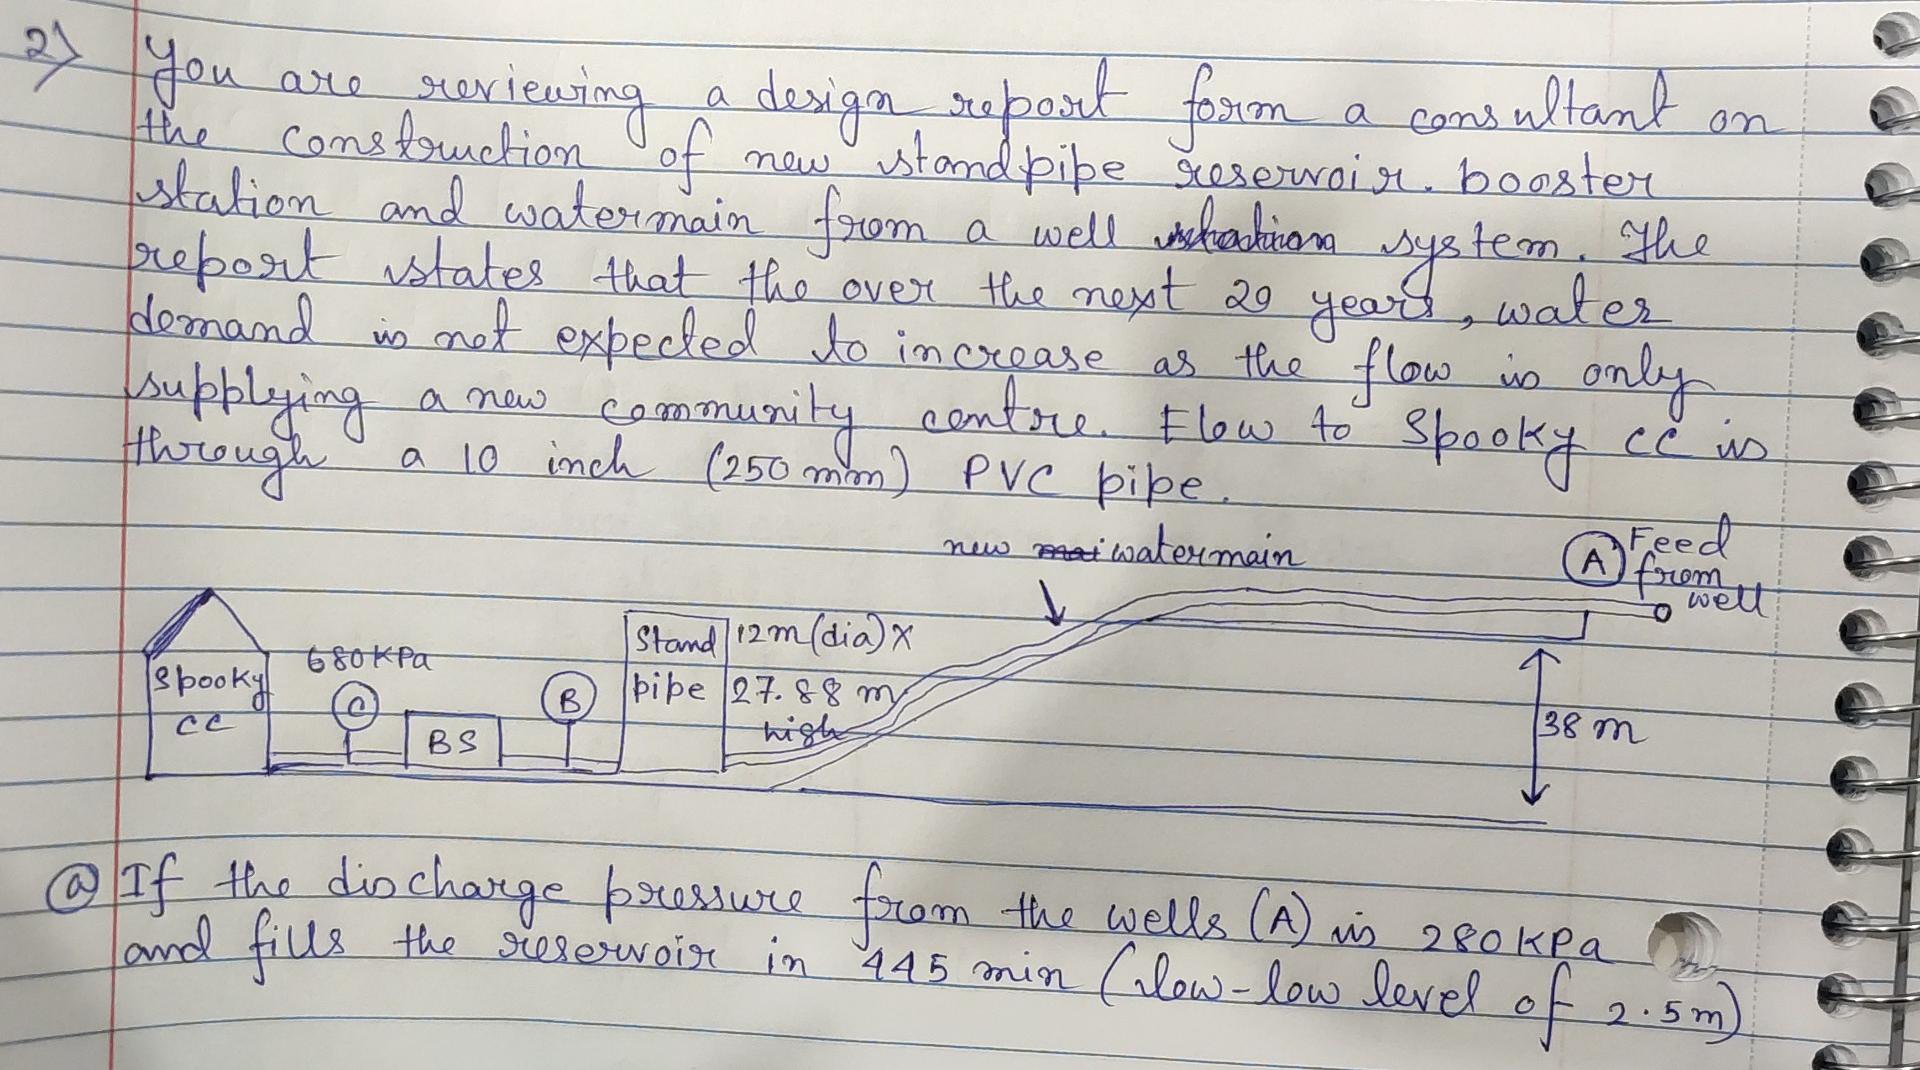 2) You are reviewing a design report form a consultant on
the construction of new standpipe reservoir. booster
station and watermain from a well system. The
report states that the over the next 20 years, water
demand is not expected to increase as the flow is only
supplying a new community centre. Flow to Spooky CC is
through a 10 inch (250 mm) PVC pipe.
new watermain
A Feed
from
well
Stand 12m (dia) X
pipe 27.88 m
high
680 KPa
Spooky
CC
C
BS
B
38 m
a If the discharge pressure from the wells (A) is 280 KPa
and fills the reservoir in 445 min (low-low level of 2.5m)